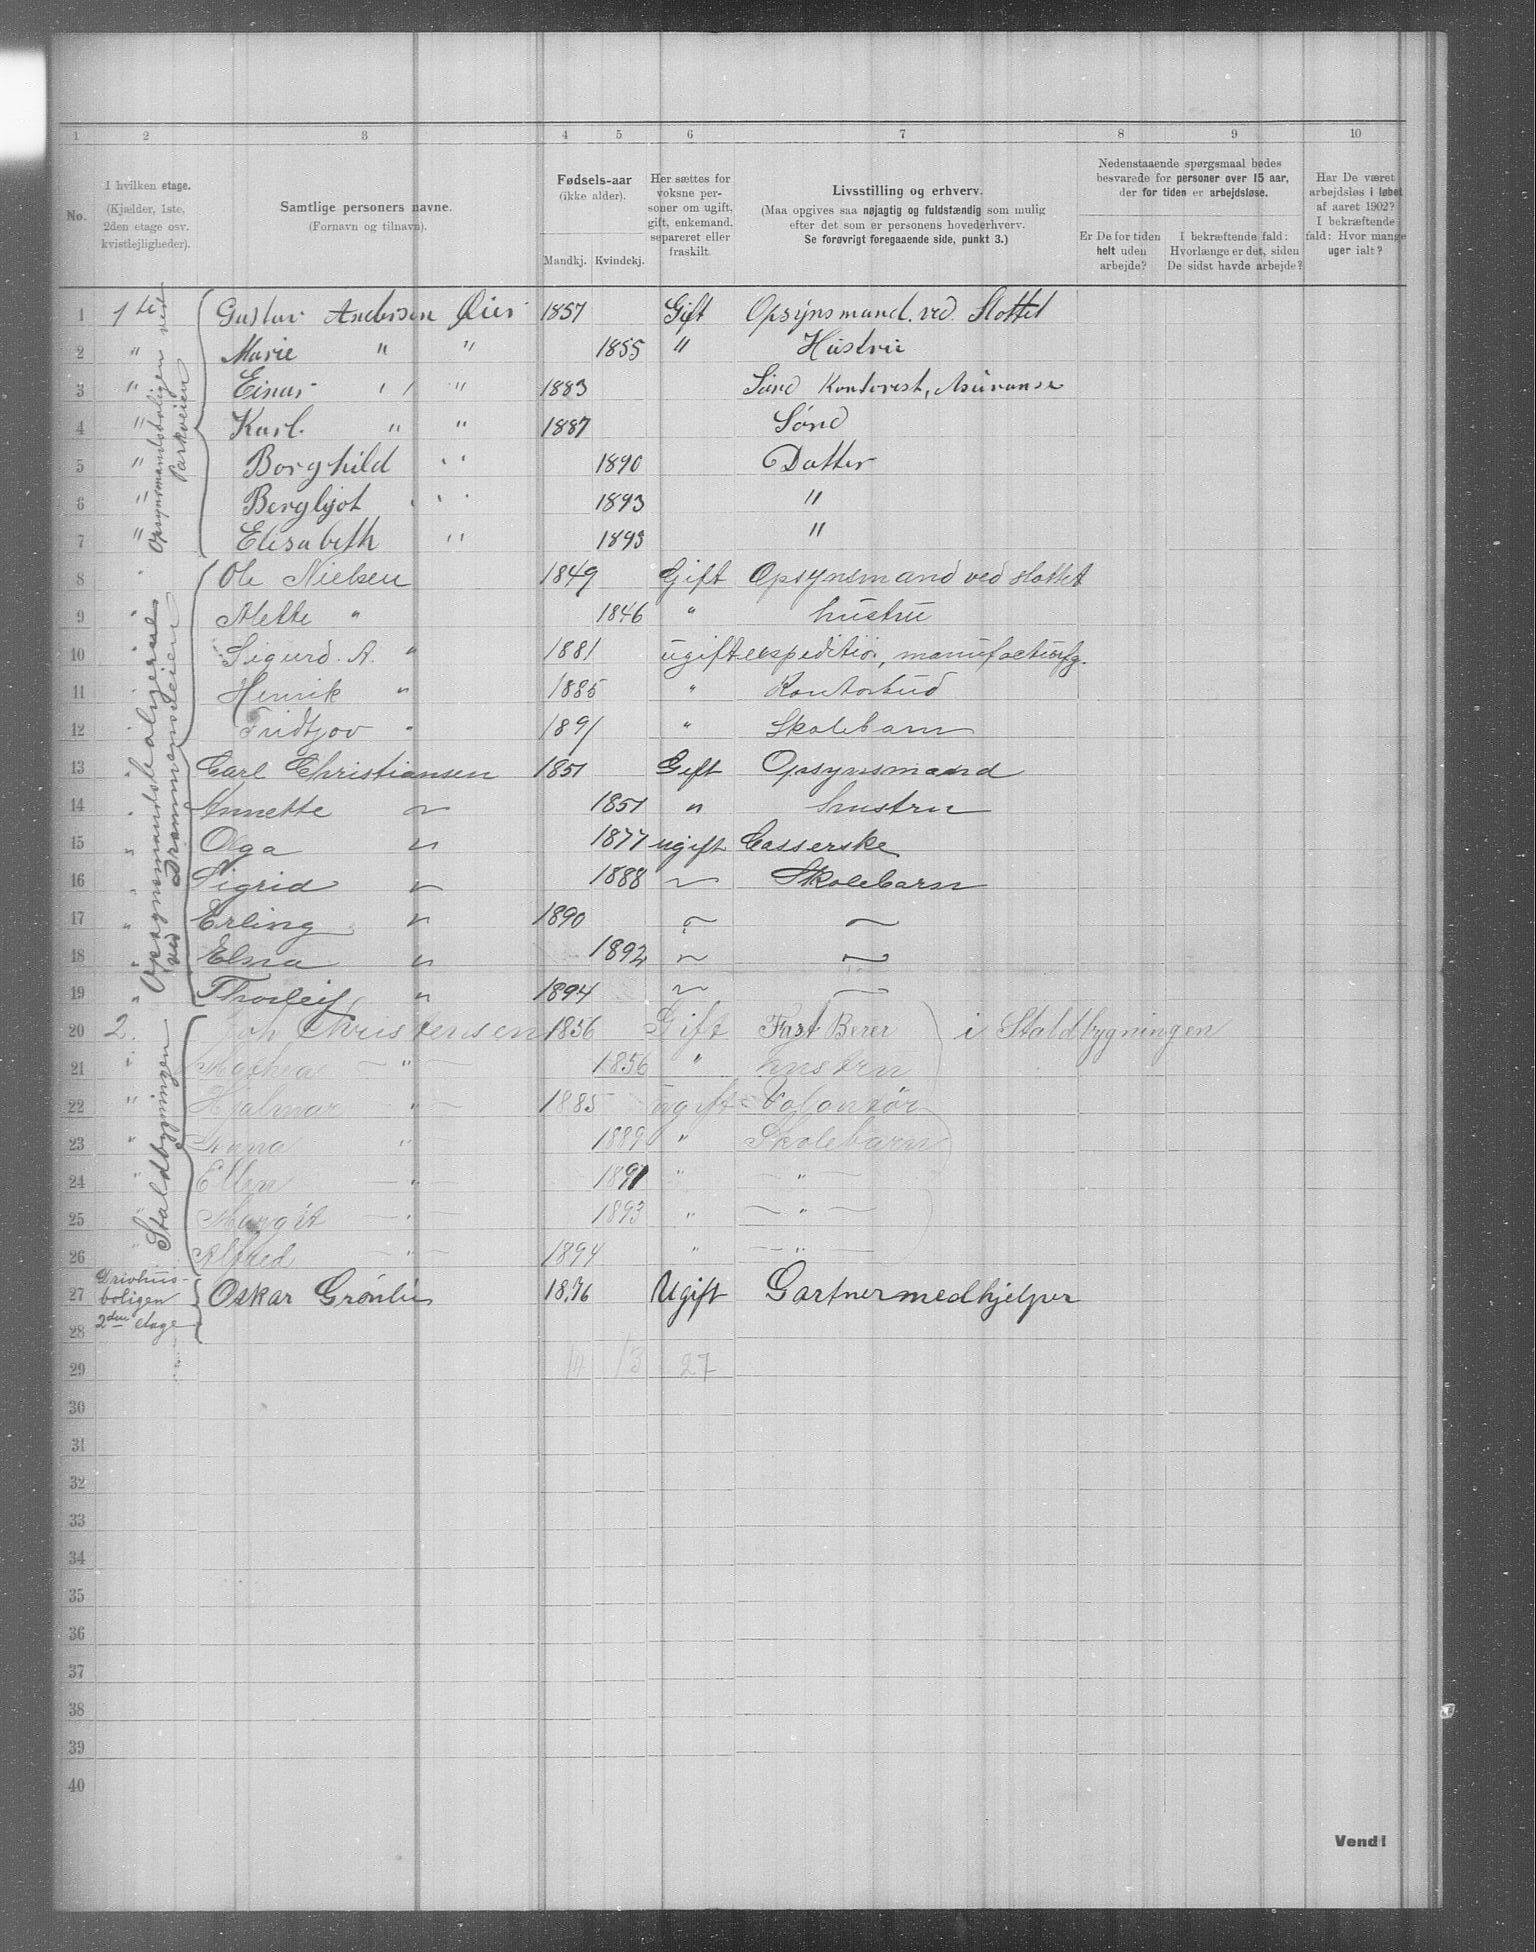 1 2 3 4 5 6 7 8 9 10
No.
I hvilken etage.
(Kjælder, 1ste,
2den etage osv.
kvistlejligheder).
Samtlige personers navne.
(Fornavn og tilnavn).
Fødsels-aar
(ikke alder).
Mandkj. Kvindekj.
Her sættes for
voksne per-
soner om ugift,
gift, enkemand,
separeret eller
fraskilt.
Livsstilling og erhverv.
(Maa opgives saa nøjagtig og fuldstændig som mulig
efter det som er personens hovederhverv.
Se forøvrigt foregaaende side, punkt 3.)
Nedenstaaende spørgsmaal bedes
besvarede for personer over 15 aar,
der for tiden er arbejdsløse.
Er De for tiden
helt uden
arbejde?
I bekræftende fald:
Hvorlænge er det, siden
De sidst havde arbejde?
Har De været
arbejdsløs i løbet
af aaret 1902?
I bekræftende
fald: Hvor mange
uger ialt?
Opsynsmandsboligen ved
Parkveien
1 1ste Gustav Andersen Øier 1857 Gift Opsynsmand. ved. Slottet
2 " Marie " " 1855 " Hustru
3 " Einar " " 1883 Sønd Kontorist, Assuranse
4 " Karl. " " 1887 Sønd
5 " Borghild " 1890 Datter
6 " Bergljot " " 1893 "
7 " Elisabeth " 1893 "
Opsynsmandsboligerne
ved Drammensveien
8 " Ole Nielsen 1849 Gift Opsynsmand ved slottet
9 " Alette " 1846 " hustru
10 Sigurd. A. " 1881 ugift expeditiør, manufacturfg.
11 Henrik " 1885 " Kontorbud
12 Fridtjov " 1891 " Skolebarn
13 " Carl Christiansen 1851 Gift Opsynsmand
14 " Annette " 1851 " hustru
15 " Olga " 1877 ugift Casserske
16 " Sigrid " 1888 " Skolebarn
17 " Erling " 1890 " "
18 " Elna " 1892 " "
19 " Thorleif " 1894 " "
Staldbygningen
20 2. Joh Christensen 1856 Gift Fast Berer i Staldbygningen
21 " Mathea — " — 1856 " hustru
22 " Hjalmar " — 1885 ugift Volontør
23 " Anna " 1889 " Skolebarn
24 " Ellen — " — 1891 " — " —
25 " Margit — " — 1893 " — " —
26 " Alfred — " — 1894 " — " —
27 Drivhus-
boligen
2den etage Oskar Grønlie 1876 Ugift Gartnermedhjelper
28
29 14 13 27
30
31
32
33
34
35
36
37
38
39
40
Vend!